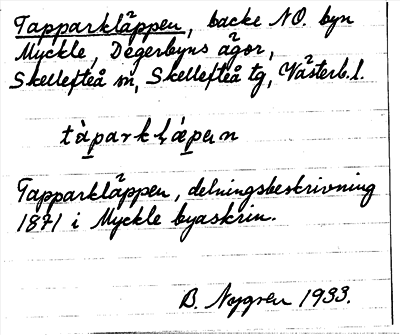 Tapparkläppen, backe NO. byn
Myckle, Degerbyns ägor,
Skellefteå sn, Skellefteå tg, Västerb. l.
Tapparkläppen, delningsbeskrivning
1871 i Myckle byaskrin.
B. Nygren 1933.